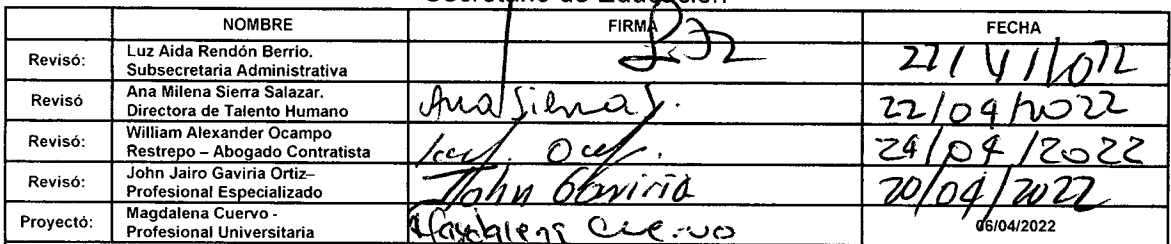 Secretario de Educación
NOMBRE FIRMA FECHA
Revisó: Luz Aida Rendón Berrio.
Subsecretaria Administrativa
Revisó Ana Milena Sierra Salazar.
Directora de Talento Humano Ana Sierra S. 22/04/2022
Revisó: William Alexander Ocampo
Restrepo – Abogado Contratista 24/04/2022
Revisó: John Jairo Gaviria Ortiz–
Profesional Especializado John Gaviria 20/04/2022
Proyectó: Magdalena Cuervo -
Profesional Universitaria Magdalena Cuervo 06/04/2022